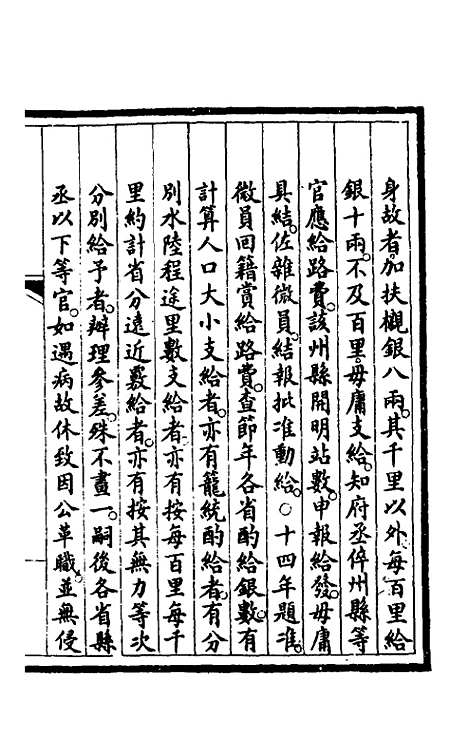 身故者。加扶櫬銀八兩。其千里以外。每百里給
銀十兩。不及百里。毋庸支給。知府丞倅州縣等
官應給路費。該州縣開明站數。申報給發。毋庸
具結。佐雜微員。結報批准動給。○十四年題准。
微員回籍賞給路費。查節年各省酌給銀數。有
計算人口大小支給者。亦有籠統酌給者。有分
別水陸程途里數支給者。亦有按每百里每千
里約計省分遠近覈給者。亦有按其無力等次
分別給予者。辦理參差。殊不畫一。嗣後各省縣
丞以下等官。如遇病故休致因公革職。並無侵